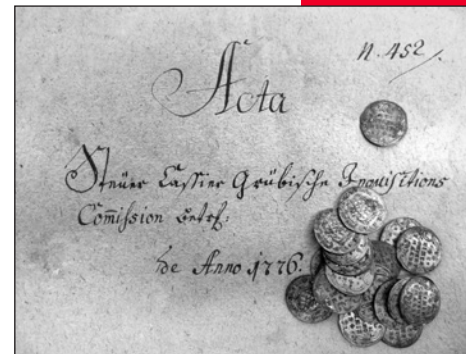 N. 452.
Acta
Steüer Cassier Grübische Inquisitions
Com̄ission betrf:
de Anno 1776.